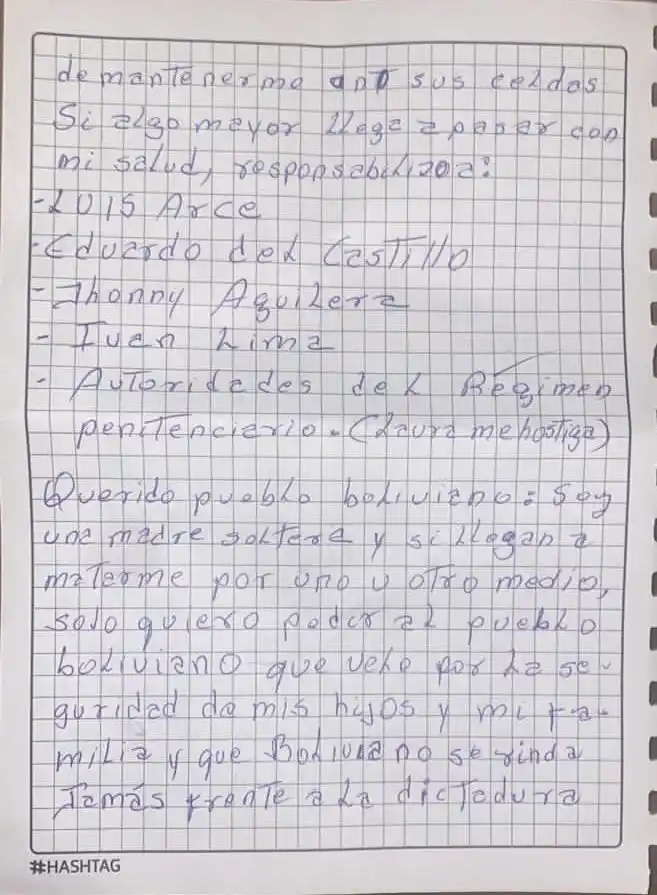 de mantenerme en sus celdas
Si algo mayor llega a pasar con
mi salud, responsabilizo a:
- Luis Arce
- Eduardo del Castillo
- Jhonny Aguilera
- Ivan Lima
- Autoridades del Régimen
penitenciario. (Laura me hostiga)
Querido pueblo boliviano: Soy
una madre soltera y si llegan a
matarme por uno u otro medio,
solo quiero pedir al pueblo
boliviano que vele por la se-
guridad de mis hijos y mi fa-
milia y que Bolivia no se rinda
Jamás frente a la dictadura
#HASHTAG